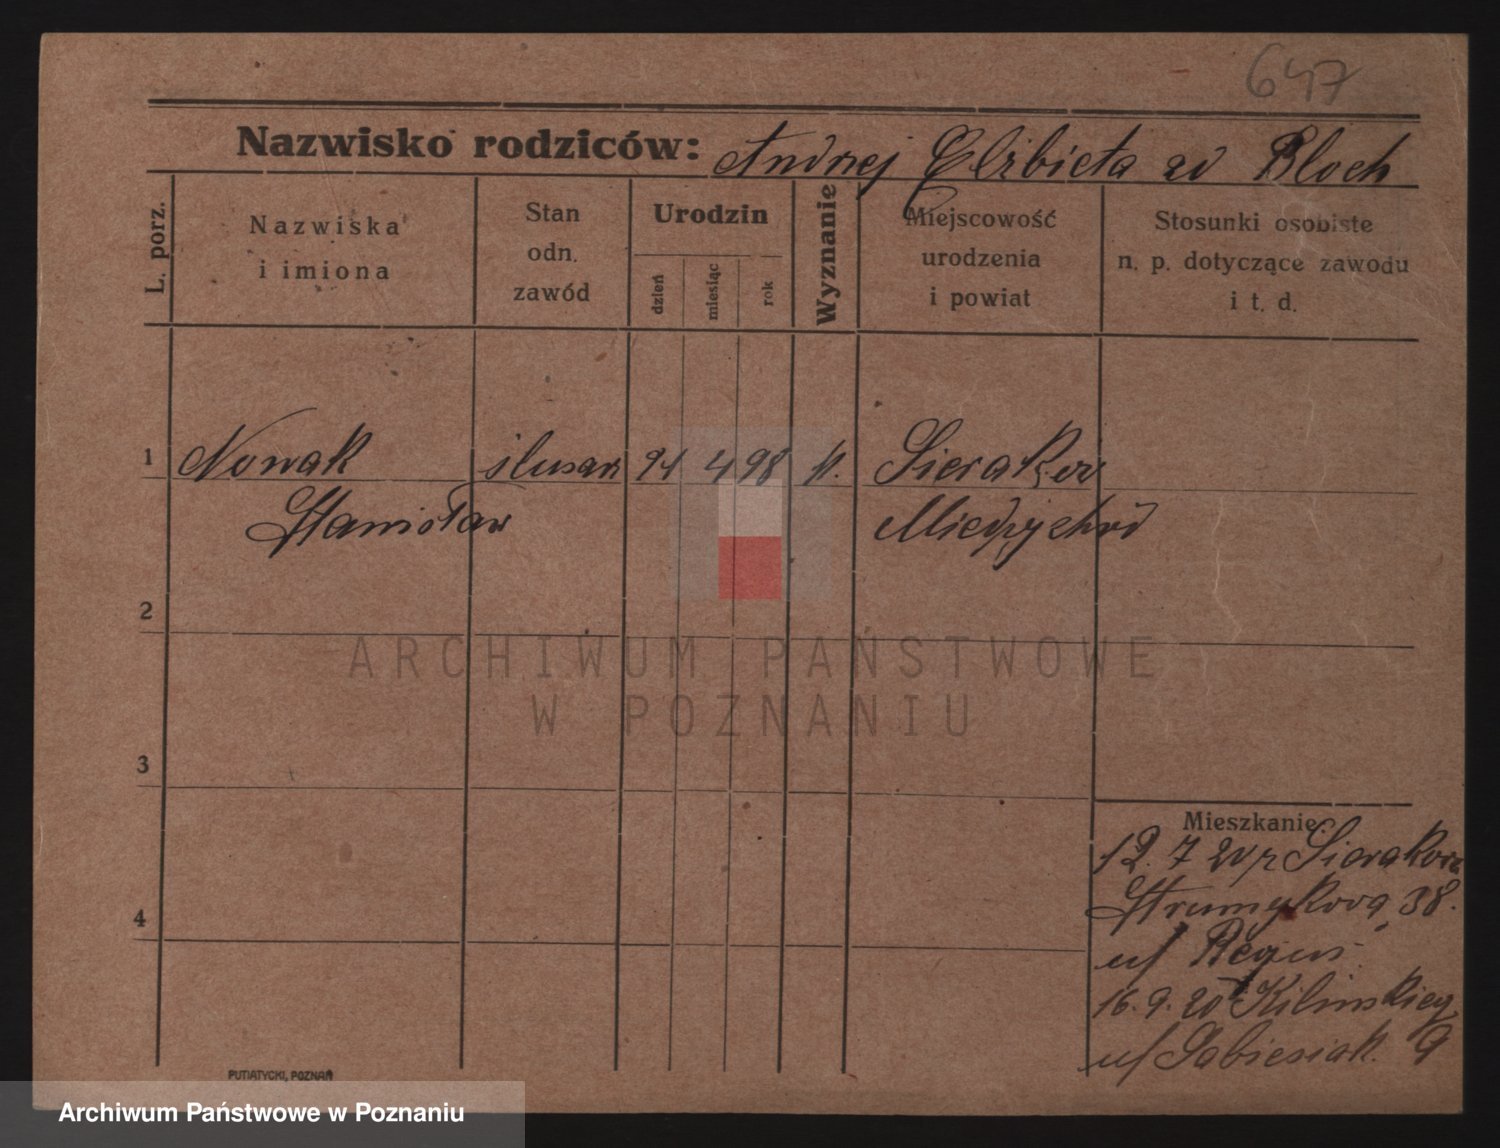 647
Nazwisko rodziców: Andrzej Elżbieta zd Bloch
L. porz.
Nazwiska i imiona
Stan odn. zawód
Urodzin
dzień
miesiąc
rok
Wyznanie
Miejscowość urodzenia i powiat
Stosunki osobiste n. p. dotyczące zawodu i t. d.
1 Nowak ślusarz 21 4 98 k. Sieraków
Stanisław Międzychód
2
3
4
ARCHIWUM PAŃSTWOWE
W POZNANIU
Mieszkanie:
12. 7 20 z Sierakowa
Strumykowa 38.
u/
16. 9. 20 Kilińskiego 9
u/ Sobiesiak.
PUTIATYCKI, POZNAŃ
Archiwum Państwowe w Poznaniu